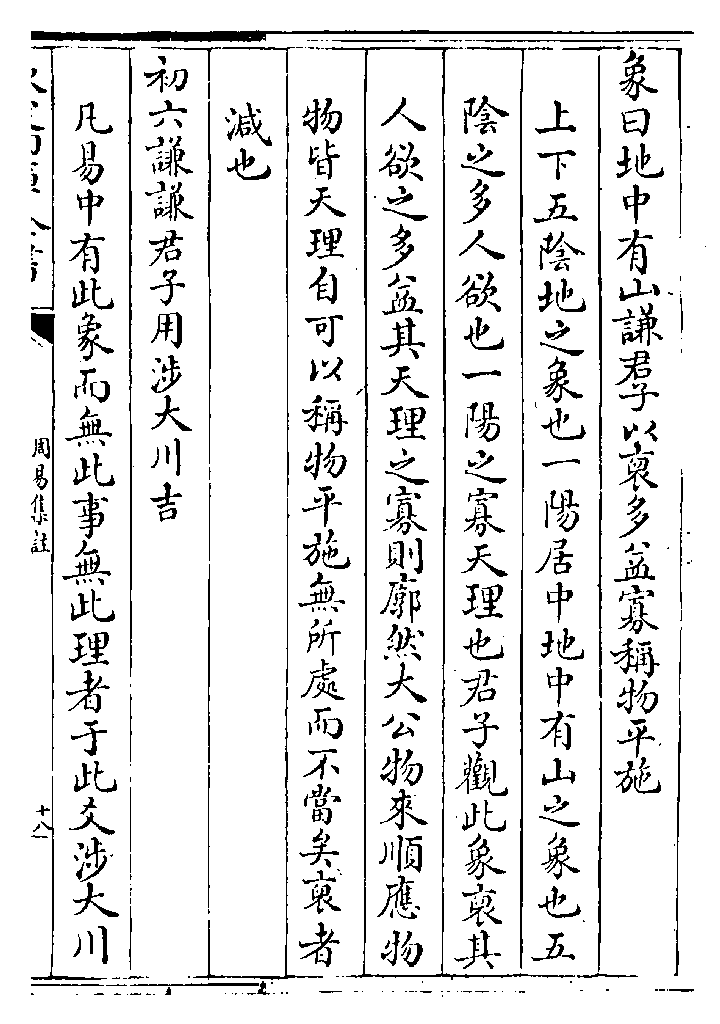 象曰地中有山謙君子以裒多益寡稱物平施
上下五陰地之象也一陽居中地中有山之象也五
陰之多人欲也一陽之寡天理也君子觀此象裒其
人欲之多益其天理之寡則廓然大公物來順應物
物皆天理自可以稱物平施無所處而不當矣裒者
減也
初六謙謙君子用涉大川吉
凡易中有此象而無此事無此理者于此爻涉大川
周易集註
十八